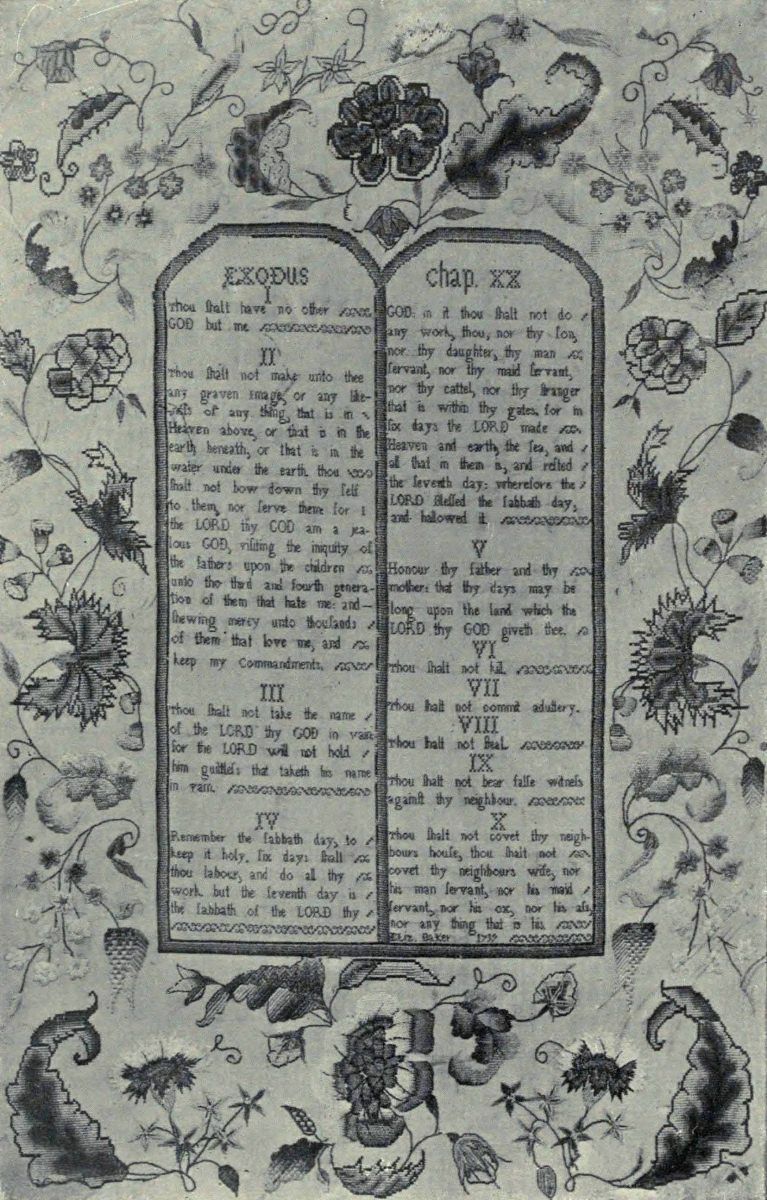 EXODUS
I
Thou ſhalt have no other
GOD but me
II
Thou ſhalt not make unto thee
any graven Image, or any like-
neſs of any thing, that is in
Heaven above, or that is in the
earth beneath, or that is in the
water under the earth. thou
ſhalt not bow down thy ſelf
to them, nor ſerve them: for I
the LORD thy GOD am a jea-
lous GOD, viſiting the iniquity of
the fathers upon the children
unto the third and fourth genera-
tion of them that hate me: and
ſhewing mercy unto thouſands
of them that love me, and
keep my Commandments.
III
Thou ſhalt not take the name
of the LORD thy GOD in vain
for the LORD will not hold
him guiltleſs that taketh his name
in vain.
IV
Remember the ſabbath day, to
keep it holy. ſix days ſhalt
thou labour, and do all thy
work. but the ſeventh day is
the ſabbath of the LORD thy
chap. XX
GOD. in it thou ſhalt not do
any work, thou, nor thy ſon,
nor thy daughter, thy man
ſervant, nor thy maid ſervant,
nor thy cattel, nor thy ſtranger
that is within thy gates. for in
ſix days the LORD made
Heaven and earth, the ſea, and
all that in them is, and reſted
the ſeventh day: wherefore the
LORD bleſſed the ſabbath day,
and hallowed it.
V
Honour thy father and thy
mother: that thy days may be
long upon the land which the
LORD thy GOD giveth thee.
VI
Thou ſhalt not kill.
VII
Thou ſhalt not commit adultery.
VIII
Thou ſhalt not ſteal.
IX
Thou ſhalt not bear falſe witneſs
againſt thy neighbour.
X
Thou ſhalt not covet thy neigh-
bours houſe, thou ſhalt not
covet thy neighbours wife, nor
his man ſervant, nor his maid
ſervant, nor his ox, nor his aſs,
nor any thing that is his.
Baker